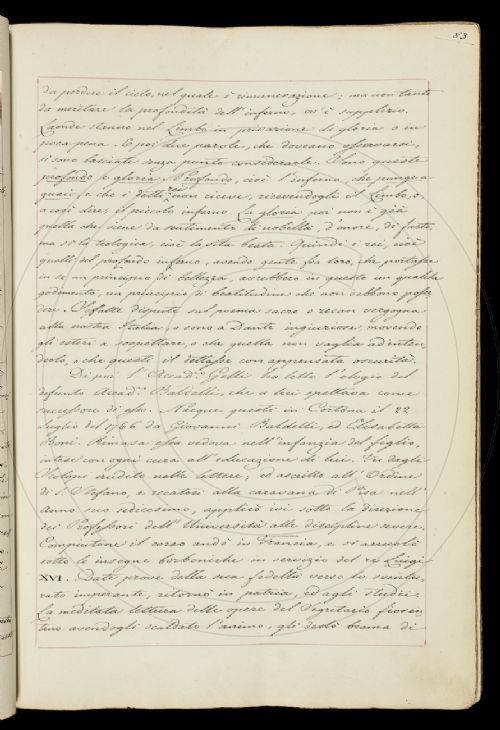 83
da perdere il cielo, nel quale è rimunerazione; ma non tanto
da meritare la profondità dell'inferno, ov'è supplizio.
Laonde stanno nel Limbo in privazione di gloria o in
poca pena. E poi due parole, che doveano osservarsi,
si sono lasciate senza punto considerarle. Sono queste
profondo e gloria. Profondo, cioè l'inferno, che punge a
guai; fa che i detti rei non riceve, ricevendogli il Limbo, o,
a così dire, il piccolo inferno. La gloria poi non è già
quella che viene da sentimento di nobeltà, d'onore, di fasto,
ma si la teologica, cioè la vita beata. Quindi i rei, cioè
quelli del profondo inferno, avendo gente fra loro, che portasse
in se un principio di bellezza, avrebbero in questo un qualche
godimento, un principio di beatitudine che non debbono posse
dere. Siffatte dispute sul poema sacro o recan vergogna
alla nostra Italia, o sono a Dante ingiuriose, movendo
gli esteri a sospettare, o che questa non vaglia ad inten
derlo, o che questi il dettasse con appensata oscurità.
Di poi l'Accadic. Gelli ha letto l'elogio del
defunto Accad. Baldelli, che a lui spettava come
successore di esso. Nacque questi in Cortona il 22
Luglio del 1766 da Giovanni Baldelli, ed Elisabetta
Boni. Rimasa essa vedova nell'infanzia del figlio,
intese con ogni cura all'educazione di lui. Fu dagli
Scolopi erudito nelle lettere; ed ascritto all'Ordine
di S. Stefano, e recatosi alla caravana di Pisa nell'
Anno suo sedicesimo, applicò ivi sotto la direzione
dei Professori dell'Università alle discipline severe.
Compiutone il corso andò in Francia, e si arruolò
sotto le insegne borboniche in servizio del re Luigi
XVI. Date prove della sua fedeltà verso lo sventu-
rato imperante, ritornò in patria, ed agli studii.
La meditata lettura delle opere del Segretario fioren
tino avendogli scaldato l'animo, gli destò brama di